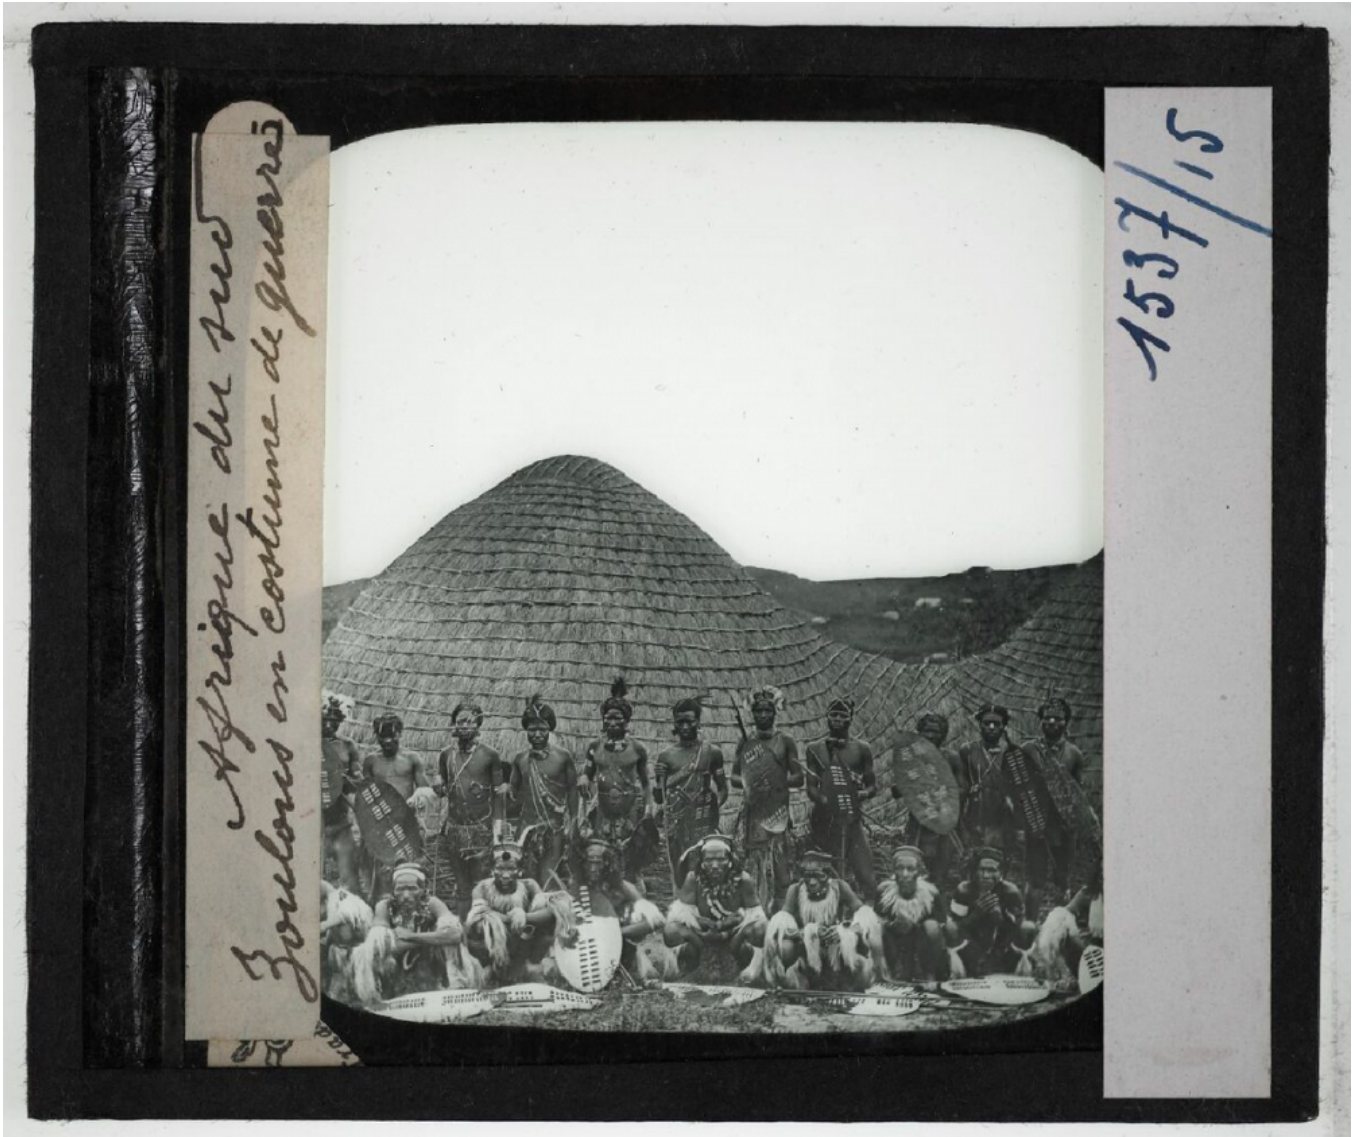 Afrique du sud
Zoulous en costume de guerre
1537/15